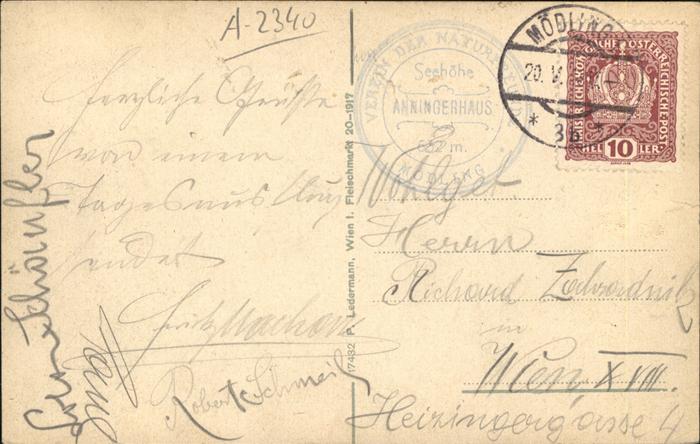 A-2340
Herzliche Grüße
von einem
Tagesausflug
sendet
Fritz Machon
Robert Schmeil
17432 P. Ledermann, Wien I. Fleischmarkt 20-1917
VEREIN DER NATURFREUNDE
Seehöhe
ANNINGERHAUS
m.
MÖDLING
MÖDLING
20. V.
* 3b *
KAISERLICHE KÖNIGLICHE ÖSTERREICHISCHE POST
HELLER
10
Wohlgeb.
Herrn
Richard
in
Wien XVIII.